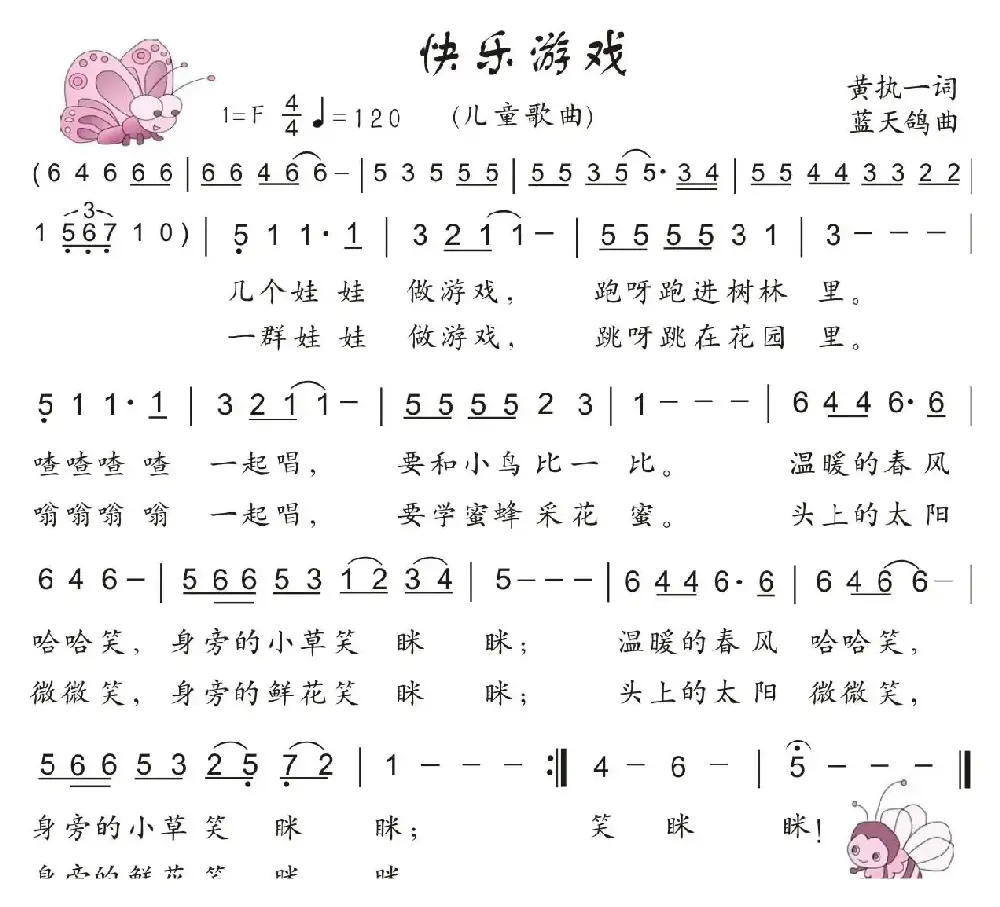 快乐游戏
黄执一词
1=F 4/4 ♩=120 (儿童歌曲)
蓝天鸽曲
(6 4 6 6 6 | 6 6 4 6 6 – | 5 3 5 5 5 | 5 5 3 5 5· 3 4 | 5 5 4 4 3 3 2 2 |
3
1 5 6 7 1 0) | 5 1 1· 1 | 3 2 1 1 – | 5 5 5 5 3 1 | 3 – – – |
几个娃娃 做游戏, 跑呀跑进树林 里。
一群娃娃 做游戏, 跳呀跳在花园 里。
5 1 1· 1 | 3 2 1 1 – | 5 5 5 5 2 3 | 1 – – – | 6 4 4 6· 6 |
喳喳喳 喳 一起唱, 要和小鸟比一 比。 温暖的春风
嗡嗡嗡 嗡 一起唱, 要学蜜蜂采花 蜜。 头上的太阳
6 4 6 – | 5 6 6 5 3 1 2 3 4 | 5 – – – | 6 4 4 6· 6 | 6 4 6 6 – |
哈哈笑, 身旁的小草笑 眯 眯; 温暖的春风 哈哈笑,
微微笑, 身旁的鲜花笑 眯 眯; 头上的太阳 微微笑,
5 6 6 5 3 2 5 7 2 | 1 – – – :‖ 4 – 6 – | 5 – – – ‖
身旁的小草 笑 眯 眯; 笑 眯 眯!
身旁的鲜花 笑 眯 眯